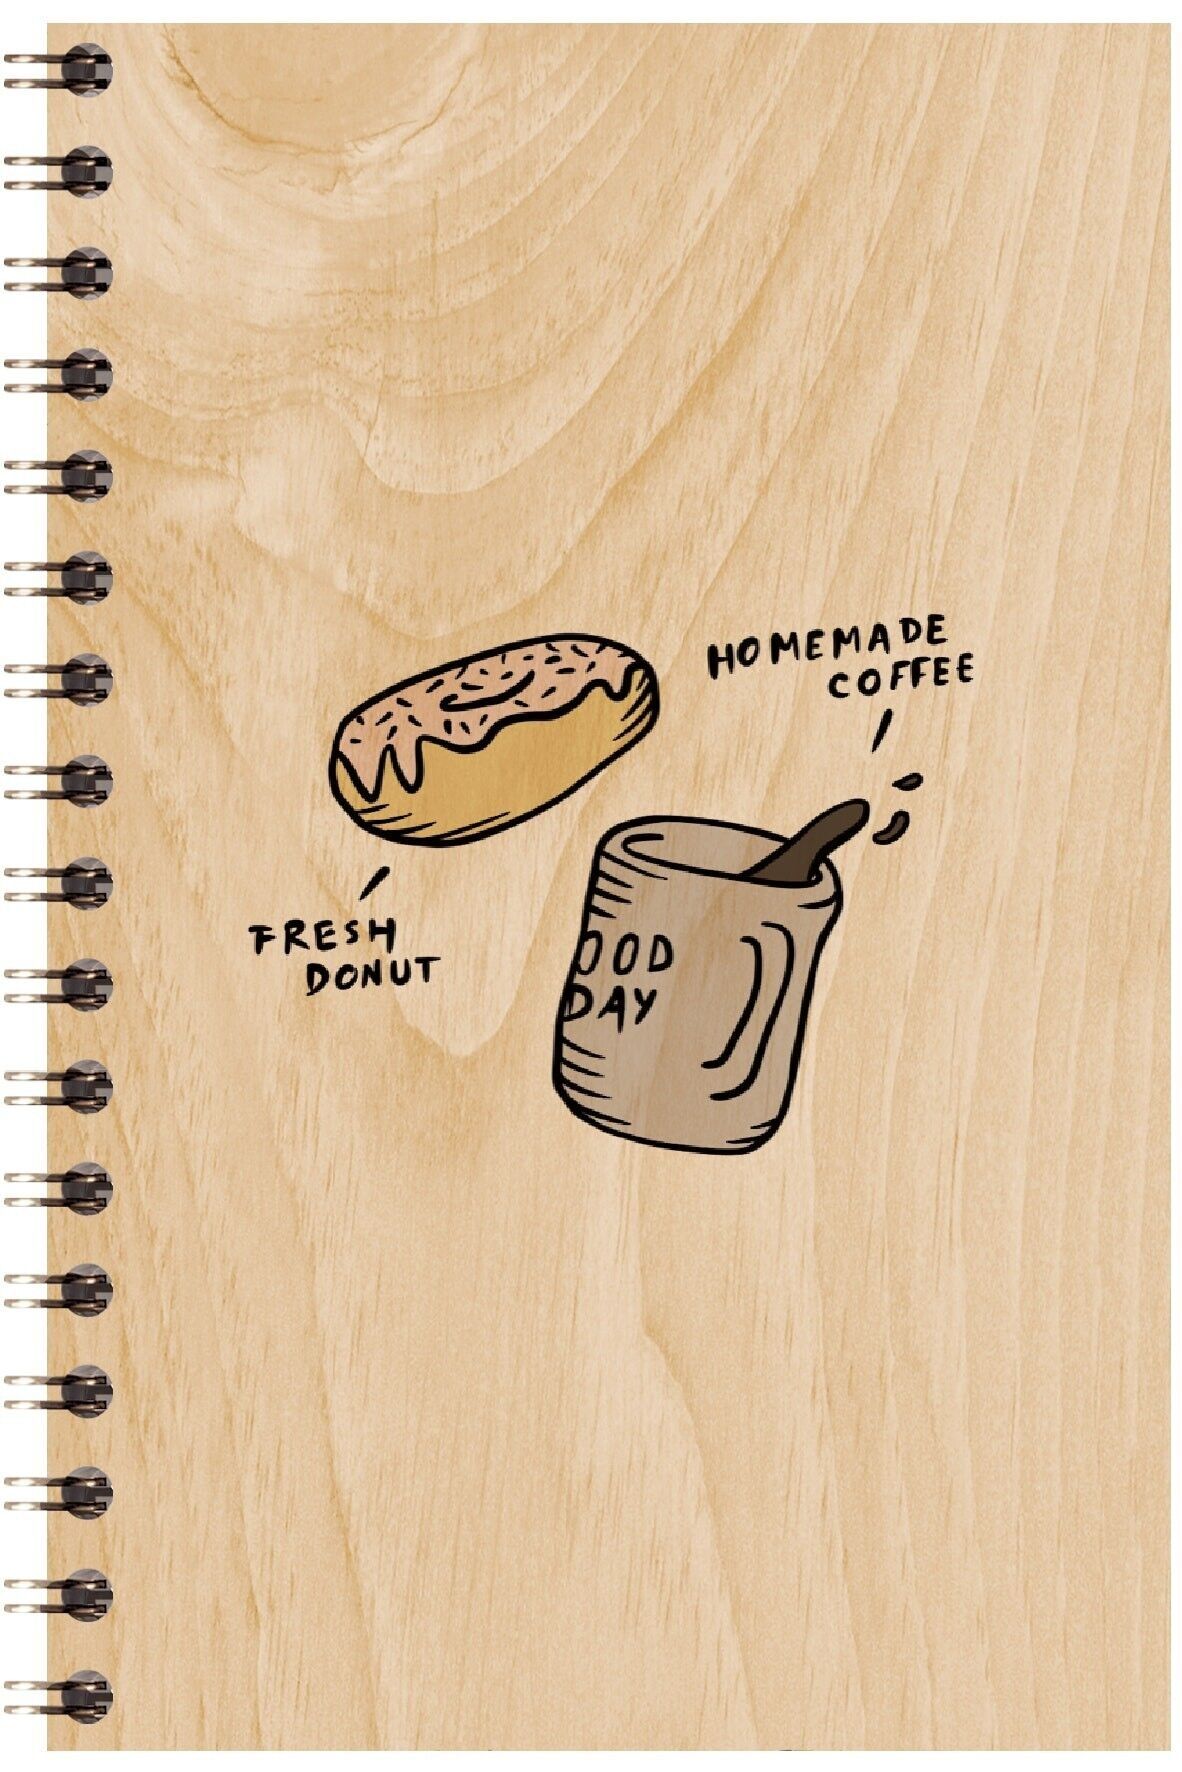 HOMEMADE
COFFEE
FRESH
DONUT
OOD
DAY